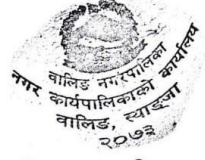 वालिङ नगरपालिका
नगर कार्यपालिकाको कार्यालय
वालिङ, स्याङ्जा
२०७३